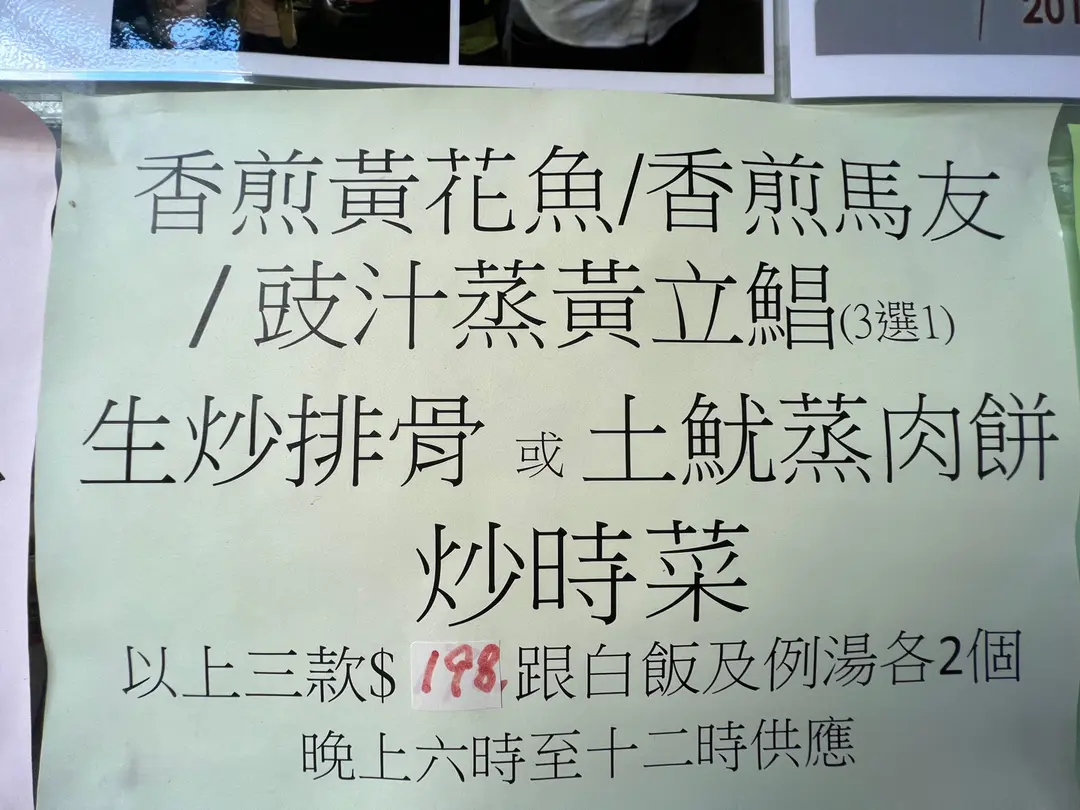 201
香煎黃花魚/香煎馬友
/豉汁蒸黃立鯧(3選1)
生炒排骨 或 土魷蒸肉餅
炒時菜
以上三款$198.跟白飯及例湯各2個
晚上六時至十二時供應